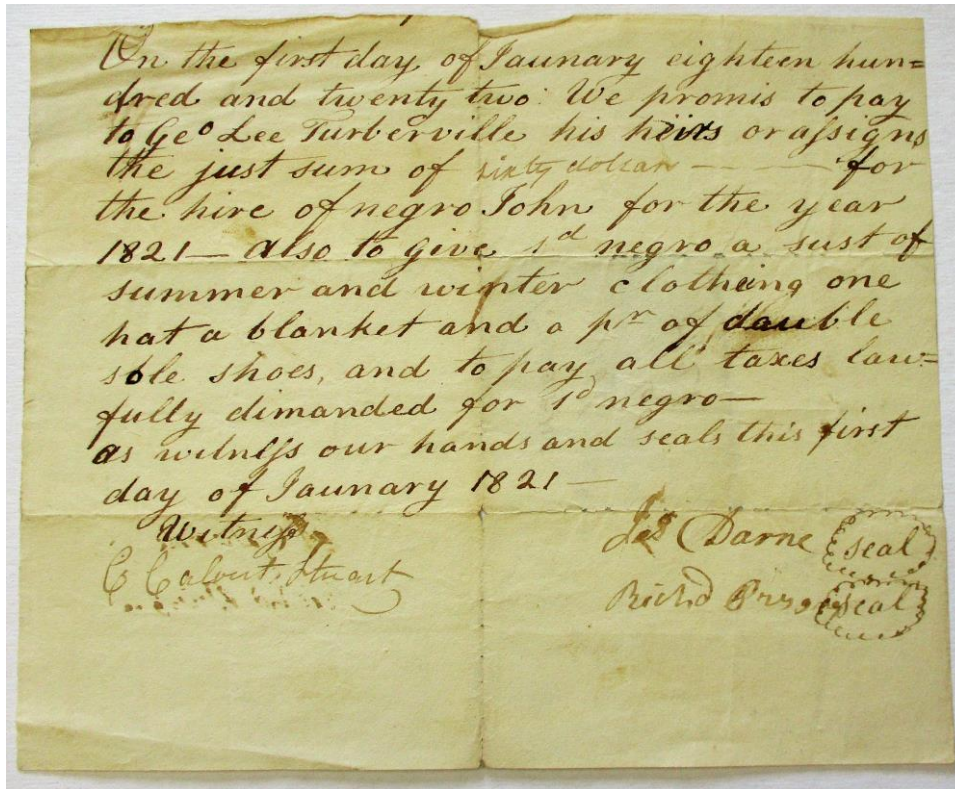 On the first day of Jaunary eighteen hun=
dred and twenty two. We promis to pay
to Geo Lee Turberville his heirs or assigns
the just sum of sixty dollars — — — for
the hire of negro John for the year
1821 — also to give sd negro a sust of
summer and winter clothing one
hat a blanket and a pr of dauble
sole shoes, and to pay all taxes law=
fully dimanded for sd negro —
as witness our hands and seals this first
day of Jaunary 1821 —
Witness
C Calvert Stuart
Darne seal
Richd seal